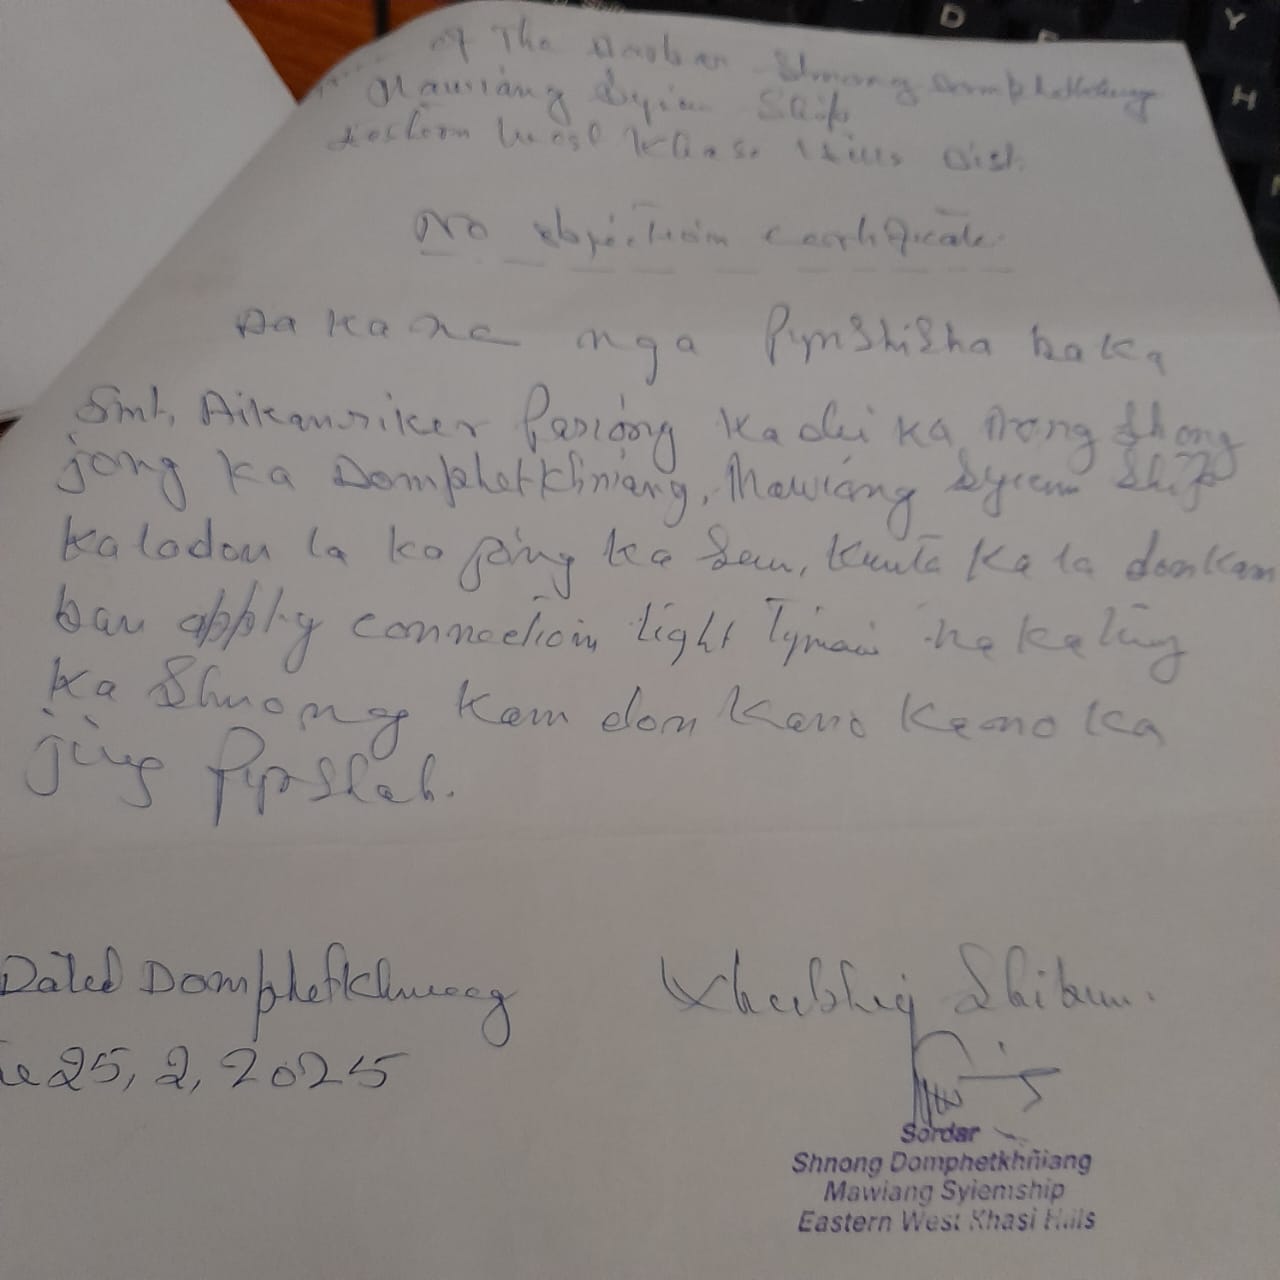 of The Dorbar Shnong Domphetkhniang
Mawiang Syiem Ship
Eastern West Khasi Hills Dist.
No objection certificate
Da kane nga Pynshisha baka
Smt, Aikansiker Pariong ka dei ka nong shong
jong ka Domphetkhniang, Mawiang Syiem Ship
ka ladon la ka jong ka sem, kumta ka la donkam
ban apply connection light Tymai ha ka ïing
ka Shnong kam don kano kano ka
jing Pyrshah.
Dated Domphetkhniang
25, 2, 2025
Sordar
Shnong Domphetkhñiang
Mawiang Syiemship
Eastern West Khasi Hills